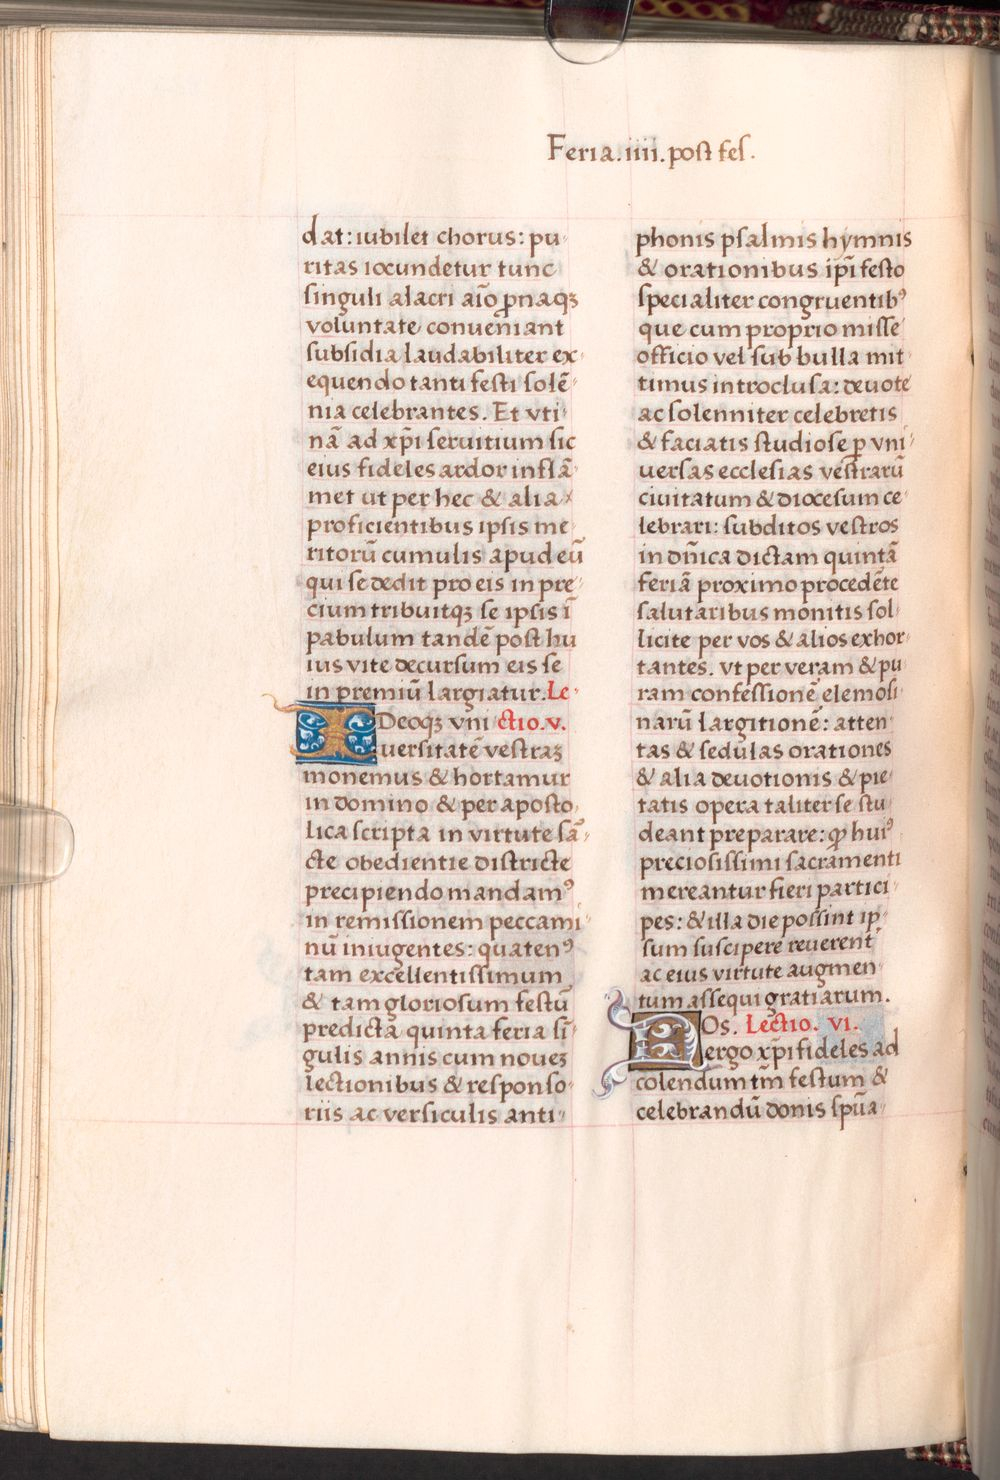 Feria.iiii.post fes.
dat: iubilet chorus: pu-
ritas iocundetur tunc
singuli alacri aĩo ꝓnaqꝫ
voluntate conueniant
subsidia laudabiliter ex-
equendo tanti festi solẽ-
nia celebrantes. Et vti-
nã ad xp̃i seruitium sic
eius fideles ardor inflã-
met ut per hec & alia
proficientibus ipsis me-
ritorũ cumulis apud eũ
qui se dedit pro eis in pre-
cium tribuitqꝫ se ipsis ĩ
pabulum tandẽ post hu-
ius vite decursum eis se
in premiũ largiatur. Le-
IDeoqꝫ vni- ctio.v.
uersitatẽ vestraꝫ
monemus & hortamur
in domino & per aposto-
lica scripta in virtute sã-
cte obedientie districte
precipiendo mandamꝰ
in remissionem peccami-
nũ iniugentes: quatenꝰ
tam excellentissimum
& tam gloriosum festũ
predicta quinta feria sĩ-
gulis annis cum noueꝫ
lectionibus & responso-
riis ac versiculis anti-
phonis psalmis hymnis
& orationibus ip̃i festo
specialiter congruentibꝰ
que cum proprio misse
officio vel sub bulla mit-
timus introclusa: deuote
ac solenniter celebretis
& faciatis studiose ꝑ vni-
uersas ecclesias vestrarũ
ciuitatum & diocesum ce-
lebrari: subditos vestros
in dñica dictam quintã
feriã proximo procedẽte
salutaribus monitis sol-
licite per vos & alios exhor-
tantes. vt per veram & pu-
ram confessionẽ elemosi-
narũ largitionẽ: atten-
tas & sedulas orationes
& alia deuotionis & pie-
tatis opera taliter se stu-
deant preparare: ꝙ huiꝰ
preciosissimi sacramenti
mereantur fieri partici-
pes: & illa die possint ip-
sum suscipere reuerent̛
ac eius virtute augmen-
tum assequi gratiarum.
NOs. Lectio. vi.
ergo xp̃ifideles ad
colendum tm̃ festum &
celebrandũ donis spũa-